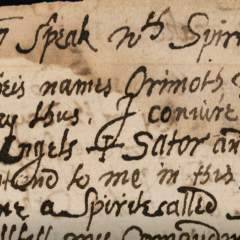 Speak wth Spirr
heis names Orimoth
ey thus. I coniure
Angels ☩ Sator an
tend to me in this
me a Spirit called